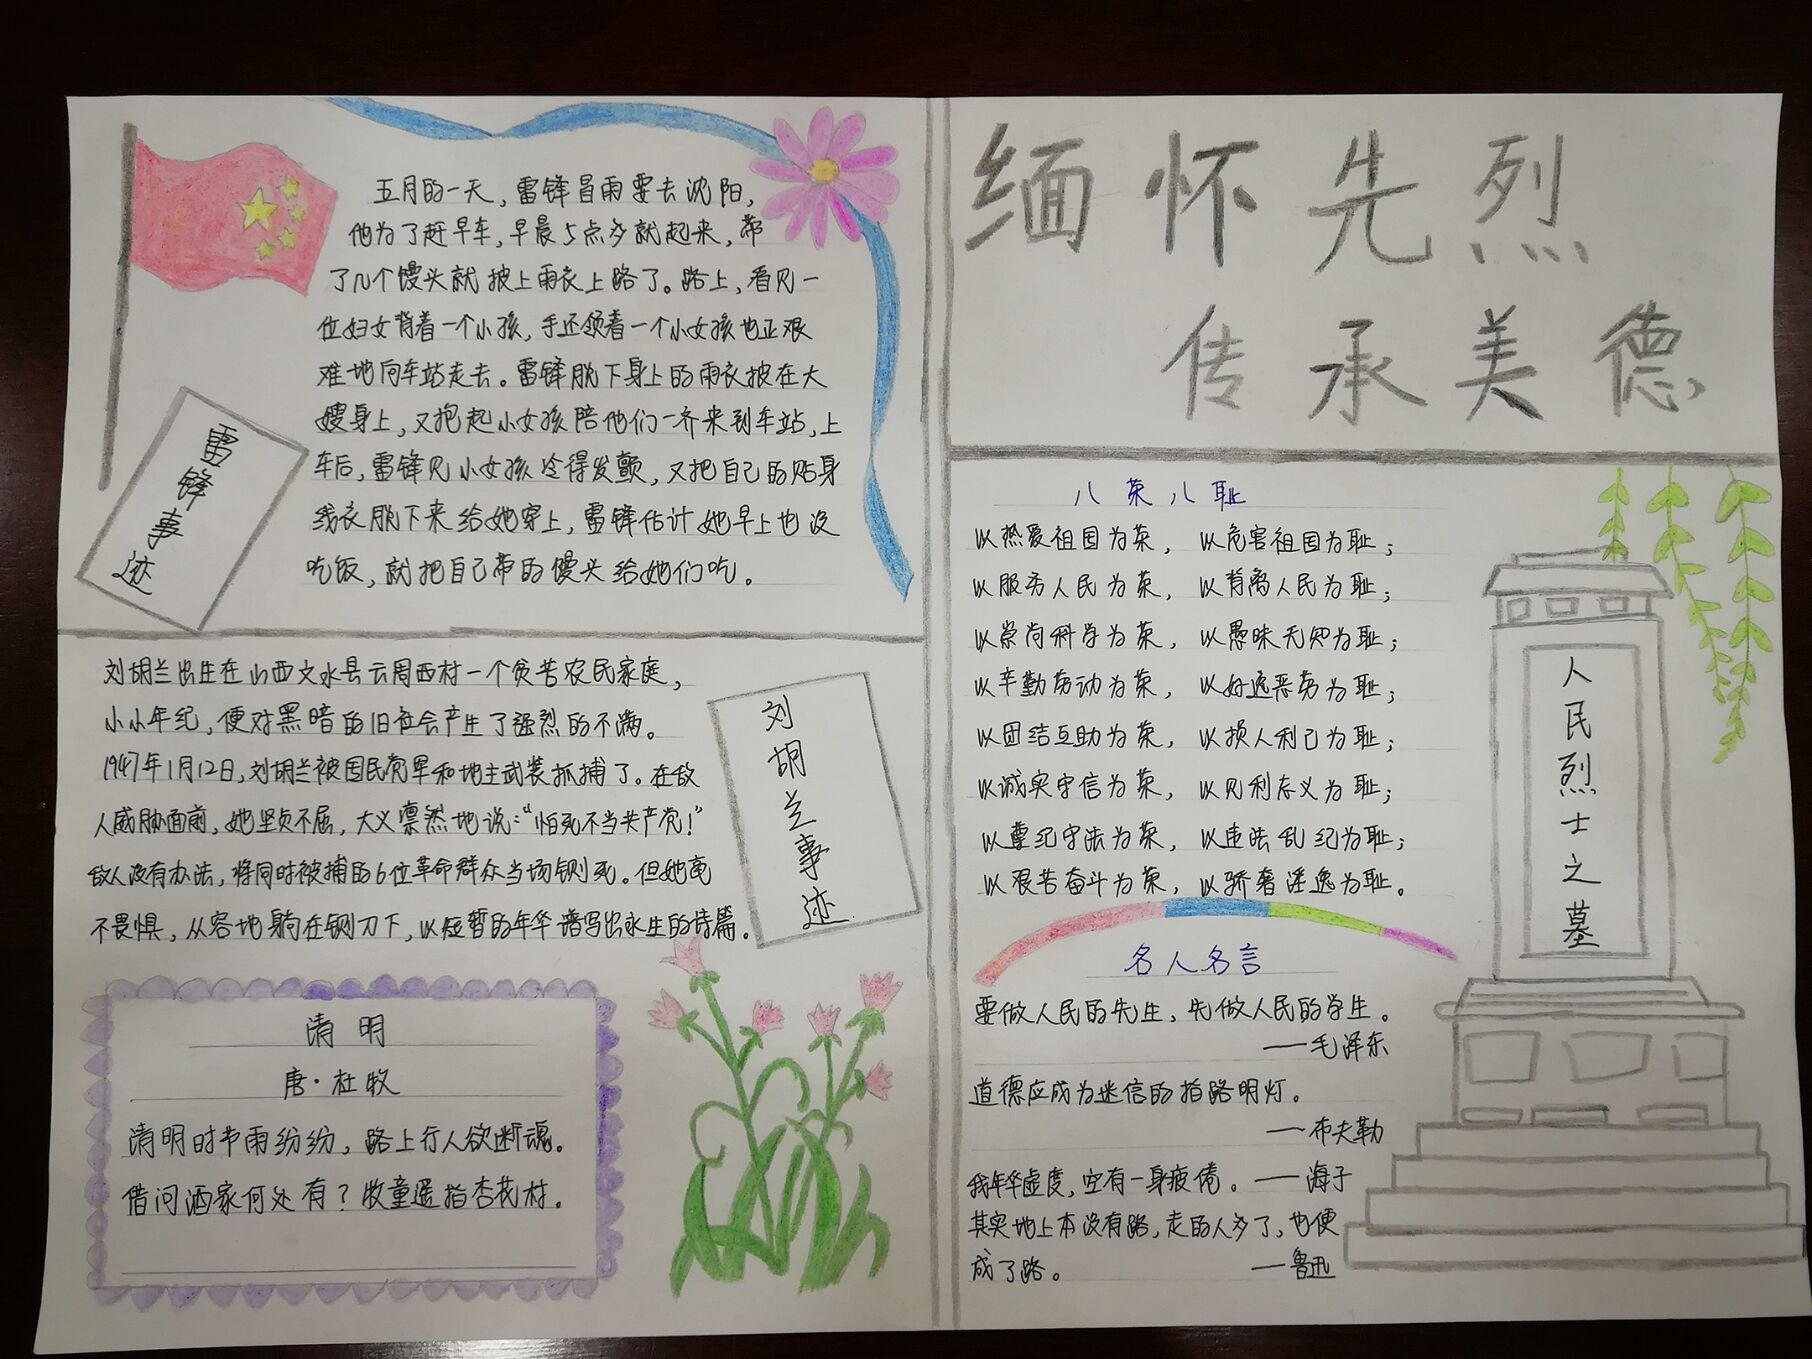 缅怀先烈
传承美德
雷锋事迹
五月的一天，雷锋冒雨要去沈阳，
他为了赶早车，早晨5点多就起来，带
了几个馒头就披上雨衣上路了。路上，看见一
位妇女背着一个小孩，手还领着一个小女孩也正艰
难地向车站走去。雷锋脱下身上的雨衣披在大
嫂身上，又抱起小女孩陪他们一齐来到车站，上
车后，雷锋见小女孩冷得发颤，又把自己的贴身
线衣脱下来给她穿上，雷锋估计她早上也没
吃饭，就把自己带的馒头给她们吃。
刘胡兰出生在山西文水县云周西村一个贫苦农民家庭，
小小年纪，便对黑暗的旧社会产生了强烈的不满。
1947年1月12日，刘胡兰被国民党军和地主武装抓捕了。在敌
人威胁面前，她坚贞不屈，大义凛然地说：“怕死不当共产党！”
敌人没有办法，将同时被捕的6位革命群众当场铡死。但她毫
不畏惧，从容地躺在铡刀下，以短暂的年华谱写出永生的诗篇。
刘胡兰事迹
清明
唐·杜牧
清明时节雨纷纷，路上行人欲断魂。
借问酒家何处有？牧童遥指杏花村。
八荣八耻
以热爱祖国为荣，以危害祖国为耻；
以服务人民为荣，以背离人民为耻；
以崇尚科学为荣，以愚昧无知为耻；
以辛勤劳动为荣，以好逸恶劳为耻；
以团结互助为荣，以损人利己为耻；
以诚实守信为荣，以见利忘义为耻；
以遵纪守法为荣，以违法乱纪为耻；
以艰苦奋斗为荣，以骄奢淫逸为耻。
名人名言
要做人民的先生，先做人民的学生。
——毛泽东
道德应成为迷信的指路明灯。
——布夫勒
我年华虚度，空有一身疲倦。——海子
其实地上本没有路，走的人多了，也便
成了路。——鲁迅
人民烈士之墓